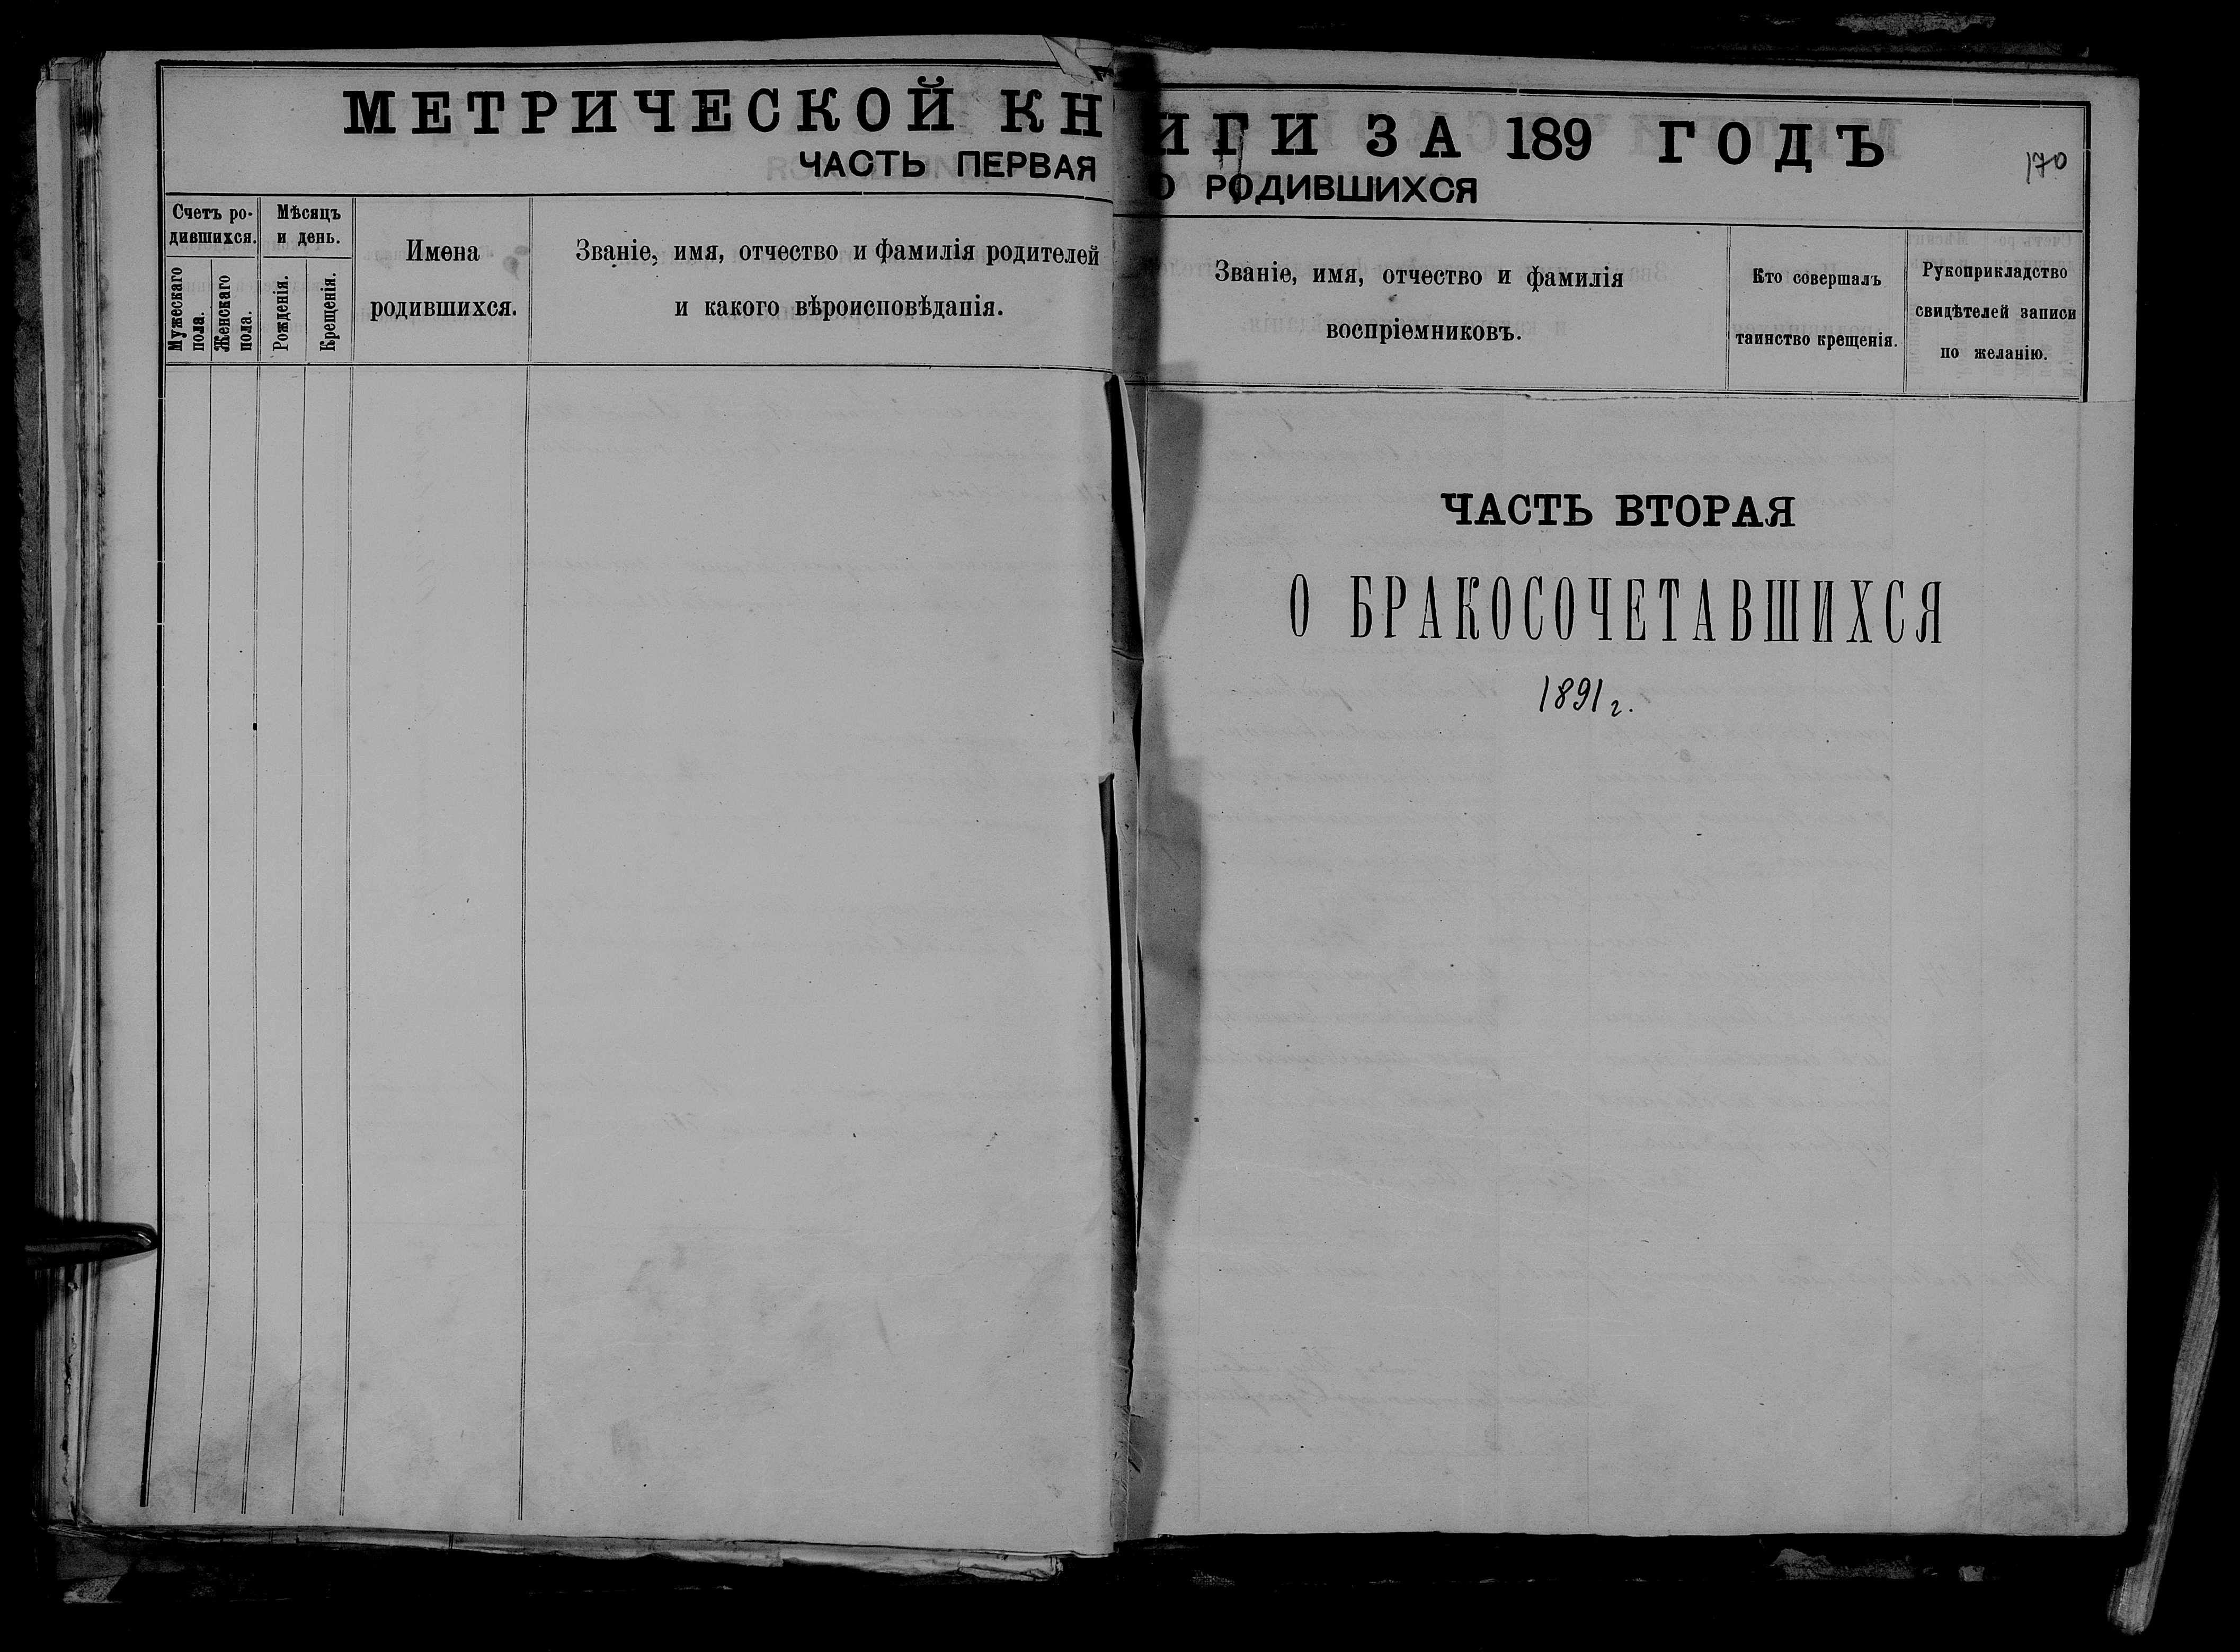 МЕТРИЧЕСКОЙ КНИГИ ЗА 189 ГОДЪ
170
ЧАСТЬ ПЕРВАЯ О РОДИВШИХСЯ
Счетъ ро-
дившихся.
Мужескаго
пола.
Женскаго
пола.
Мѣсяцъ
и день.
Рожденія.
Крещенія.
Имена
родившихся.
Званіе, имя, отчество и фамилія родителей
и какого вѣроисповѣданія.
Званіе, имя, отчество и фамилія
воспріемниковъ.
Кто совершалъ
таинство крещенія.
Рукоприкладство
свидѣтелей записи
по желанію.
ЧАСТЬ ВТОРАЯ
О БРАКОСОЧЕТАВШИХСЯ
1891 г.